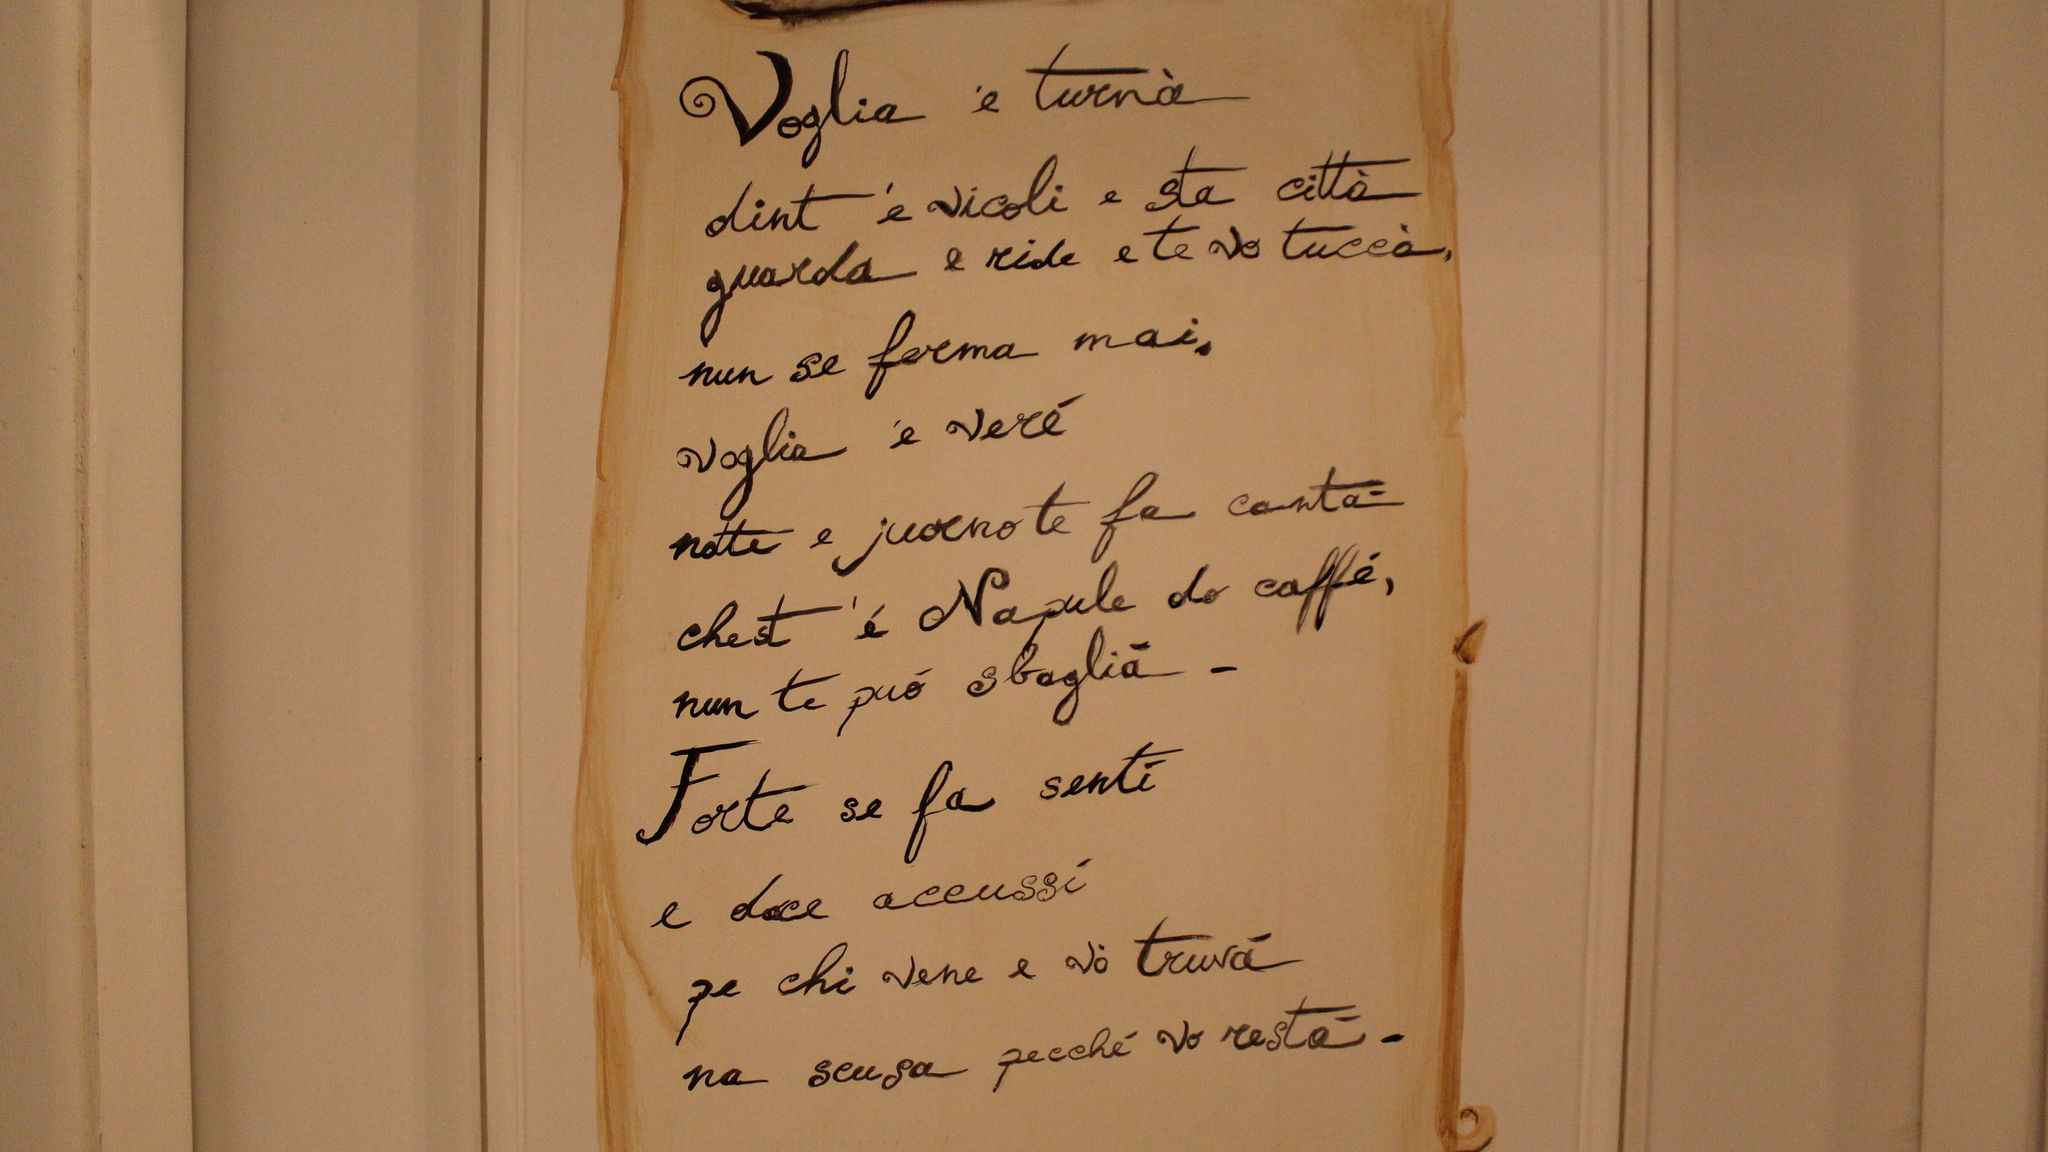 Voglia 'e turnà
dint 'e vicoli e sta città
guarda e ride e te vo tuccà,
nun se ferma mai,
voglia 'e veré
notte e juorno te fa cantà
chest 'é Napule do caffé,
nun te puó sbaglià -
Forte se fa sentí
e doce accussí
pe chi vene e vò truvá
na scusa pecché vo restà -